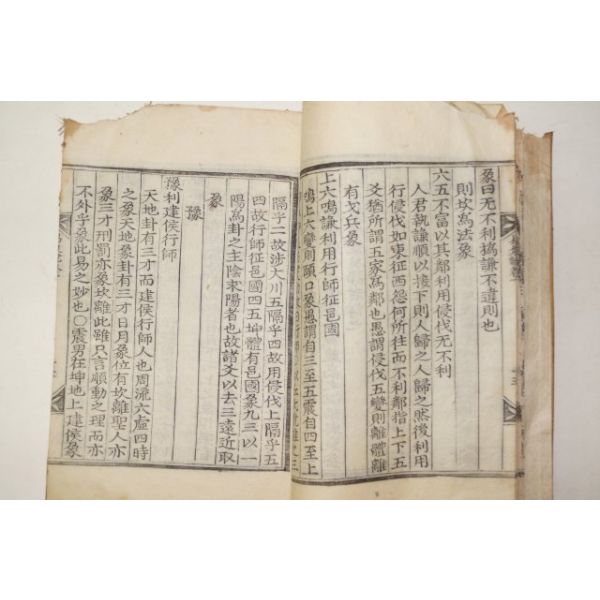 象曰无不利撝謙不違則也
則坎爲法象
六五不富以其鄰利用侵伐无不利
人君執謙順以接下則人歸之人歸之然後利用
行侵伐如東征西怨何所往而不利鄰指上下五
爻猶所謂五家爲鄰也愚謂侵伐五變則離體離
有戈兵象
上六鳴謙利用行師征邑國
鳴上六變則頤口象愚謂自三至五震自四至上
隔乎二故涉大川五隔乎四故用侵伐上隔乎五
四故行師征邑國四五坤體有邑國象九三以一
陽爲卦之主陰求陽者也故諸爻以去三遠近取
象
豫
豫利建侯行師
天地卦有三才而建侯行師人也周流六虛四時
之象天地象卦有三才日月象位有坎離聖人亦
象三才刑罰亦象坎離此雖只言順動之理而亦
不外乎象此易之妙也○震男在坤地上建侯象